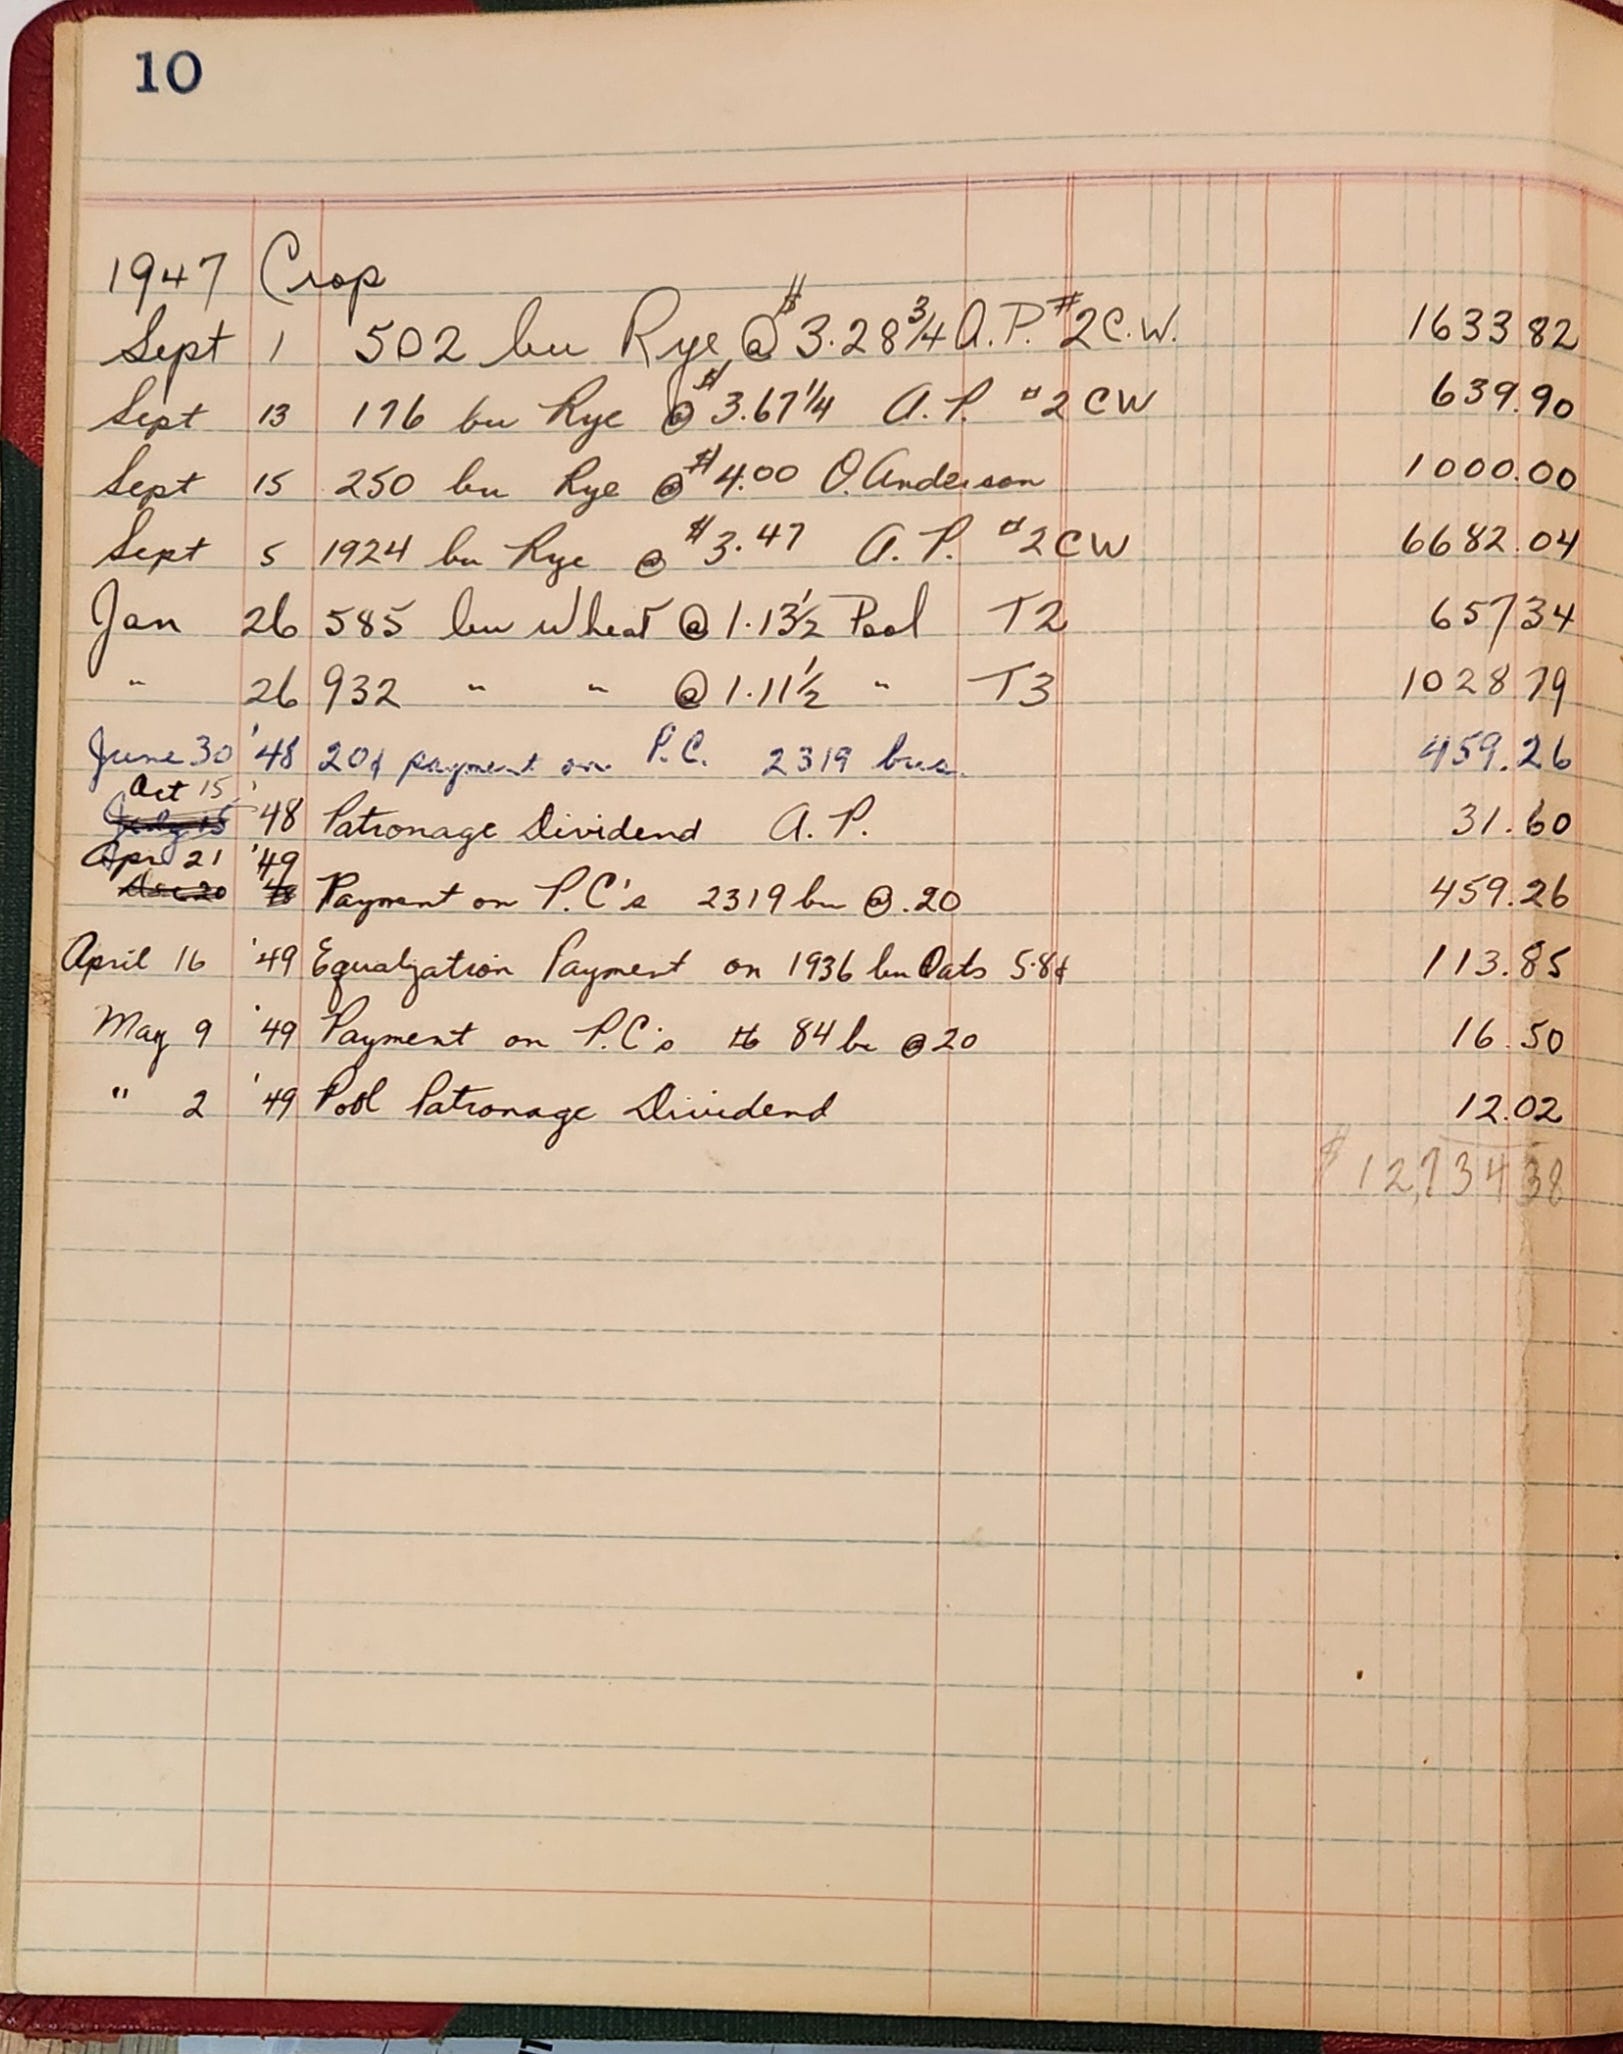 10
1947 Crop
Sept 1 502 bu Rye @ $3.28 3/4 A.P. #2 C.W. 1633 82
Sept 13 176 bu Rye @ $3.67 1/4 A.P. #2 CW 639.90
Sept 15 250 bu Rye @ $4.00 O. Anderson 1000.00
Sept 5 1924 bu Rye @ $3.47 A.P. #2 CW 6682.04
Jan 26 585 bu Wheat @ 1.13 1/2 Pool T2 657 34
" 26 932 " " @ 1.11 1/2 " T3 1028 79
June 30 '48 20¢ payment on P.C. 2319 bus. 459.26
Oct 15
July 15 '48 Patronage Dividend A.P. 31.60
Apr 21 '49
Dec 20 48 Payment on P.C's 2319 bu @ .20 459.26
April 16 '49 Equalization Payment on 1936 bu Oats 5.8¢ 113.85
May 9 '49 Payment on P.C's 84 bu @ 20 16.50
" 2 '49 Pool Patronage Dividend 12.02
$12,734 38